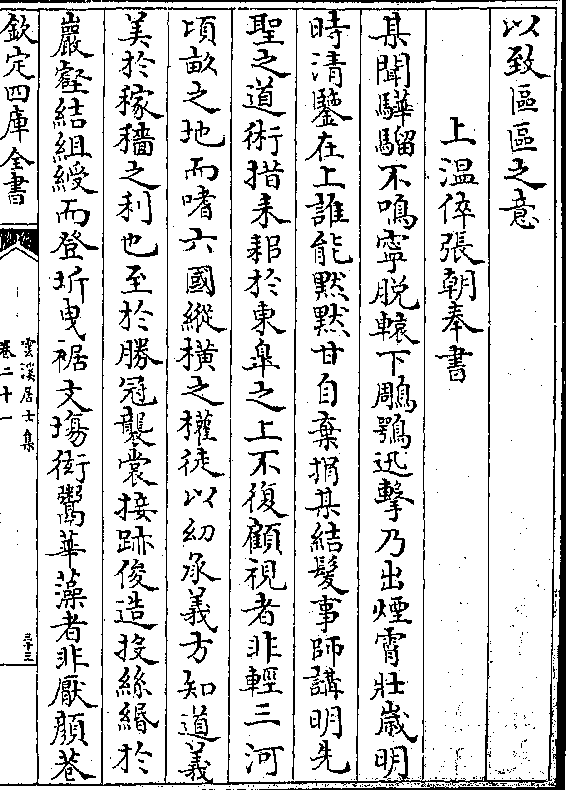 以致區區之意
上温倅張朝奉書
某聞驊騮不鳴寧脱轅下鵰鶚迅擊乃出煙霄壯歲明
時清鑒在上誰能默默甘自棄捐某結髮事師講明先
聖之道術措耒耜於東臯之上不復顧視者非輕三河
頃畝之地而嗜六國縱横之權徒以幼承義方知道義
美於稼穡之利也至於勝冠襲裳接跡俊造投絲緡於
巖壑結組綬而登圻曳裾文塲衒鬻華藻者非厭顔巷
欽定四庫全書
雲溪居士集
卷二十一
三十三